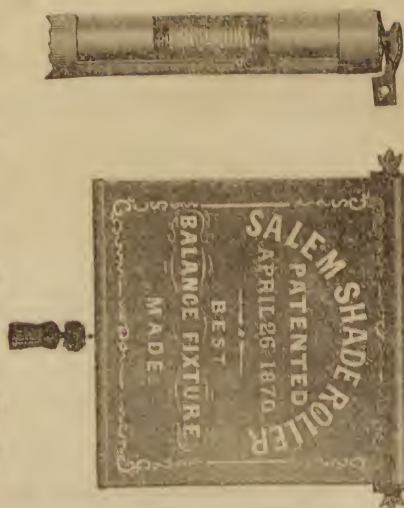 SALEM SHADE ROLLER
PATENTED
APRIL 26 1870
BEST
BALANCE FIXTURE
MADE.